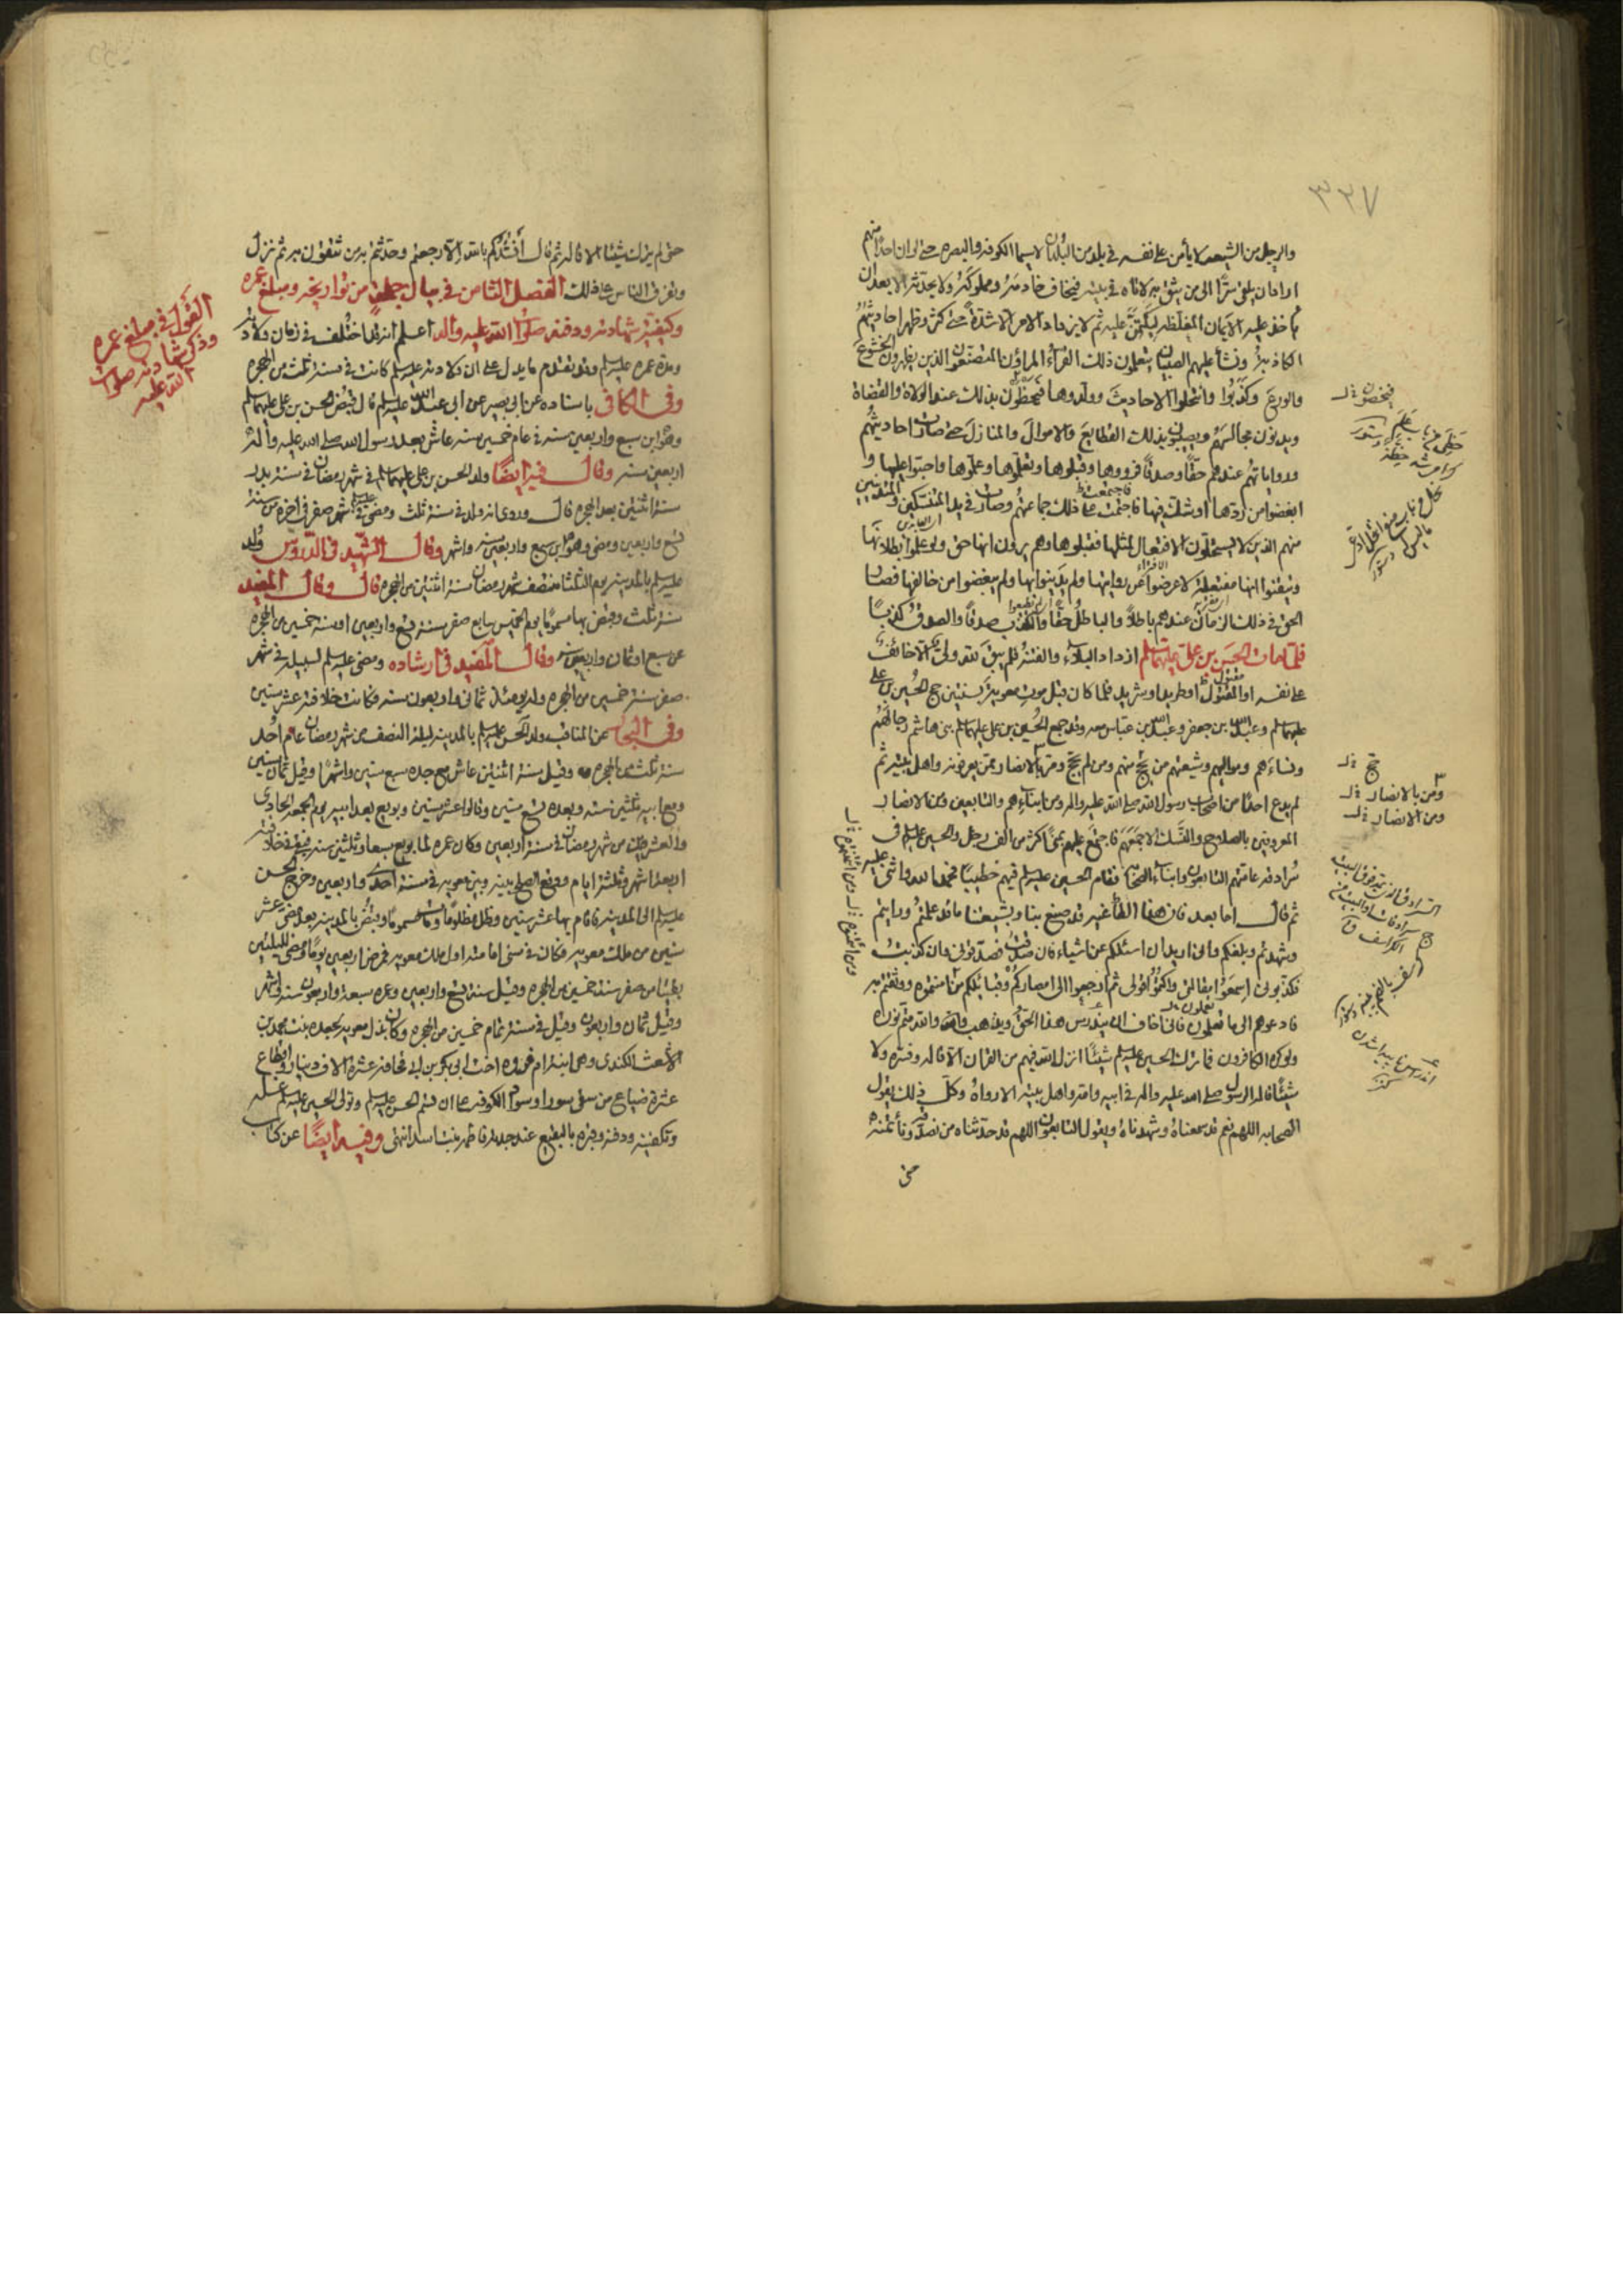 ٣٣٧
والرجل من الشيعة لا يأمن على نفسه في بلد من البلدان لا سيما الكوفة والبصرة حتى لو ان احدا منهم
اراد ان يلقى سرّا الى من يثق به لاتاه في بيته فيخاف خادمه ومملوكه ولا يحدثه الا بعد ان
يأخذ عليه الايمان المغلظة ليكتمن عليه ثم لا يزداد الامر الا شدة حتى كثر وظهر احاديثهم
الكاذبة ونشأ عليهم الصبيان يتعلمون ذلك القراء المراؤن المتصنعون الذين يظهرون الخشوع
والورع وكذبوا وانتحلوا الاحاديث وولدوها فيحظون بذلك عند الولاة والقضاة
ويدنون مجالسهم ويصيبون بذلك القطايع والاموال والمنازل حتى صارت احاديثهم
ورواياتهم عندهم حقّا وصدقا فرووها وقبلوها وتعلموها وعلموها واحبوا عليها و
ابغضوا من ردها او شك فيها فاجتمعت على ذلك جماعتهم وصارت في يد المتنسكين والمتدينين
منهم الذين لا يستحلون الافتعال لمثلها فقبلوها وهم يرون انها حق ولو علموا بطلانها
وتيقنوا انها مفتعلة لاعرضوا عن روايتها ولم يدينوا بها ولم يبغضوا من خالفها فصار
الحق في ذلك الزمان عندهم باطلا والباطل حقا والكذب صدقا والصدق كذبا
فلما مات الحسن بن علي عليهما السلم ازداد البلاء والفتنة فلم يبق لله ولي الا خائف
على نفسه او مقتول او طريد او شريد فلما كان قبل موت معوية بسنتين حج الحسين بن علي
عليهما السلم وعبد الله بن جعفر وعبد الله بن عباس معه وقد جمع الحسين بن علي عليهما السلم بني هاشم رجالهم
ونساءهم ومواليهم وشيعتهم من حج منهم ومن لم يحج ومن بالانصار ممن يعرفونه واهل بيته ثم
لم يدع احدا من اصحاب رسول الله صلى الله عليه واله ومن ابنائهم والتابعين ومن الانصار
المعروفين بالصلاح والنسك الا جمعهم فاجتمع عليهم بمنى اكثر من الف رجل والحسين عليه السلم في
سرادقه عامتهم التابعون وابناء الصحابة فقام الحسين عليه السلم فيهم خطيبا فحمد الله واثنى عليه
ثم قال اما بعد فان هذا الطاغية قد صنع بنا وبشيعتنا ما قد علمتم ورأيتم
وشهدتم وبلغكم واني اريد ان اسئلكم عن اشياء فان صدقت فصدقوني وان كذبت
فكذبوني اسمعوا مقالتي واكتموا قولي ثم ارجعوا الى امصاركم وقبائلكم من امنتموه ووثقتم به
فادعوهم الى ما تعلمون فاني اخاف ان يندرس هذا الحق ويذهب والله متم نوره
ولو كره الكافرون فما ترك الحسين عليه السلم شيئا انزل الله فيهم من القران الا قاله وفسره ولا
شيئا قاله الرسول صلى الله عليه واله في ابيه وامه واهل بيته الا رواه وكل ذلك يقول
الصحابة اللهم نعم قد سمعناه وشهدناه ويقول التابعون اللهم قد حدثناه من نصدقه ونأتمنه
حتى
ومن بالانصار
ومن الانصار
حتى لم يترك شيئا الا قاله ثم قال أنشدكم بالله الا رجعتم وحدثتم به من تثقون به ثم نزل
وتفرق الناس على ذلك الفصل الثامن في بيان جملة من تواريخه ومبلغ عمره
وكيفية شهادته ودفنه صلوات الله عليه وآله اعلم انه قد اختلف في زمان ولادته
ومدة عمره عليه السلم وقد تقدم ما يدل على ان ولادته عليه السلم كانت في سنة ثلث من الهجرة
وفي الكافي باسناده عن ابي بصير عن ابي عبد الله عليه السلم قال قبض الحسن بن علي عليهما السلم
وهو ابن سبع واربعين سنة في عام خمسين سنة عاش بعد رسول الله صلى الله عليه وآله
اربعين سنة وقال فيه ايضا ولد الحسن بن علي عليهما السلم في شهر رمضان في سنة بدر
سنة اثنتين بعد الهجرة قال وروي انه ولد في سنة ثلث ومضى عليه السلم في شهر صفر في اخره من سنة
تسع واربعين ومضى وهو ابن سبع واربعين سنة واشهر وقال الشهيد في الدروس ولد
عليه السلم بالمدينة يوم الثلثا منتصف شهر رمضان سنة اثنتين من الهجرة قال وقال المفيد
سنة ثلث وقبض بها مسموما يوم الخميس سابع صفر سنة تسع واربعين او سنة خمسين من الهجرة
عن سبع او ثمان واربعين سنة وقال المفيد في ارشاده ومضى عليه السلم لسبيله في شهر
صفر سنة خمسين من الهجرة وله يومئذ ثمانى واربعون سنة وكانت خلافته عشر سنين
وفي البحار عن المناقب ولد الحسن عليه السلم بالمدينة ليلة النصف من شهر رمضان عام احد
سنة ثلث من الهجرة وقيل سنة اثنتين عاش مع جده سبع سنين واشهرا وقيل ثمان سنين
ومع ابيه ثلثين سنة وبعده تسع سنين وقالوا عشر سنين وبويع بعد ابيه يوم الجمعة الحادي
والعشرين من شهر رمضان في سنة اربعين وكان عمره لما بويع سبعا وثلثين سنة فبقي في خلافته
اربعة اشهر وثلثة ايام ووقع الصلح بينه وبين معوية في سنة احدى واربعين وخرج الحسن
عليه السلم الى المدينة فاقام بها عشر سنين وظل مظلوما ومات مسموما وقبض بالمدينة بعد مضي عشر
سنين من ملك معوية فكان في سني امامته اول ملك معوية فمرض اربعين يوما ومضى لليلتين
بقيتا من صفر سنة خمسين من الهجرة وقيل سنة تسع واربعين وعمره سبعة واربعون سنة واشهر
وقيل ثمان واربعون وقيل في سنة تمام خمسين من الهجرة وكان بذل معوية لجعدة بنت محمد بن
الاشعث الكندي وهي ابنة ام فروة اخت ابي بكر بن ابي قحافة عشرة الاف دينار واقطاع
عشرة ضياع من سقي سورا وسواد الكوفة على ان تسم الحسن عليه السلم وتولى الحسين عليه السلم غسله
وتكفينه ودفنه وقبره بالبقيع عند جدته فاطمة بنت اسد انتهى وفيه ايضا عن كتاب
القول في مبلغ عمره
وذكر شهادته صلوات
الله عليه